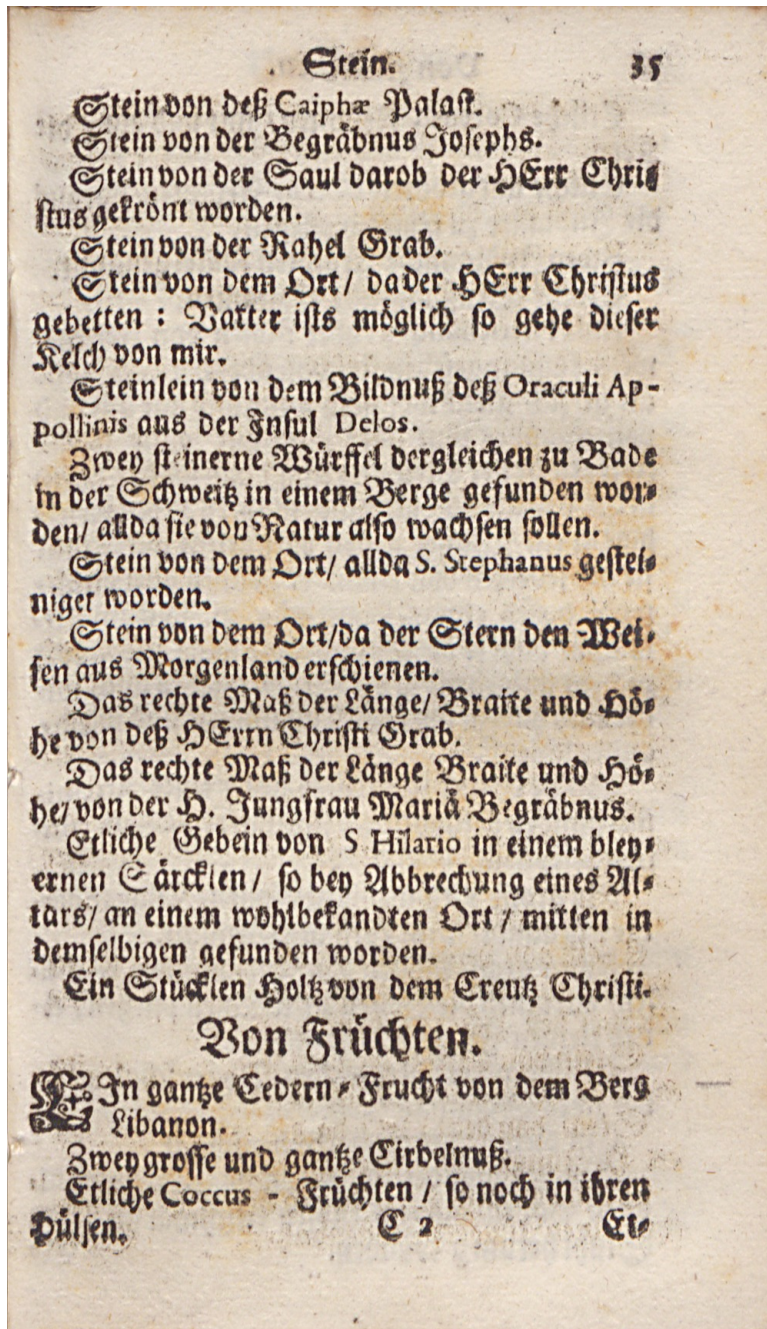 Stein. 35
Stein von deß Caiphæ Palast.
Stein von der Begräbnus Josephs.
Stein von der Saul darob der HErr Chri-
stus gekrönt worden.
Stein von der Rahel Grab.
Stein von dem Ort / da der HErr Christus
gebetten : Vatter ists möglich so gehe dieser
Kelch von mir.
Steinlein von dem Bildnuß deß Oraculi Ap-
pollinis aus der Insul Delos.
Zwey steinerne Würffel dergleichen zu Bade
in der Schweitz in einem Berge gefunden wor-
den / allda sie von Natur also wachsen sollen.
Stein von dem Ort / allda S. Stephanus gestei-
niget worden.
Stein von dem Ort / da der Stern den Wei-
sen aus Morgenland erschienen.
Das rechte Maß der Länge / Braite und Hö-
he von deß HErrn Christi Grab.
Das rechte Maß der Länge Braite und Hö-
he / von der H. Jungfrau Mariä Begräbnus.
Etliche Gebein von S Hilario in einem bley-
ernen Särcklen / so bey Abbrechung eines Al-
tars / an einem wohlbekandten Ort / mitten in
demselbigen gefunden worden.
Ein Stücklen Holtz von dem Creutz Christi.
Von Früchten.
EIn gantze Cedern-Frucht von dem Berg
Libanon.
Zwey grosse und gantze Cirbelnuß.
Etliche Coccus - Früchten / so noch in ihren
Hülsen. C 2 Et-